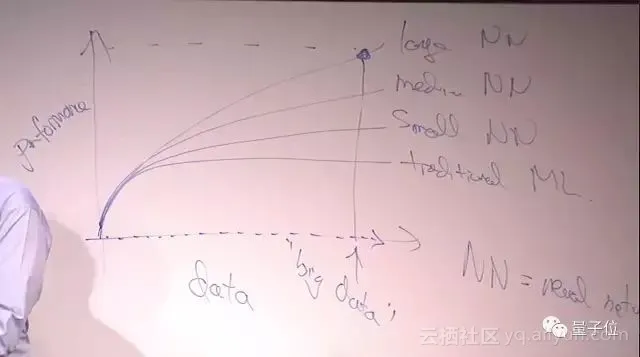 large NN
medium NN
Small NN
traditional ML.
performance
data
"big data"
NN = neural netw
量子位
云栖社区 yq.aliyun.com